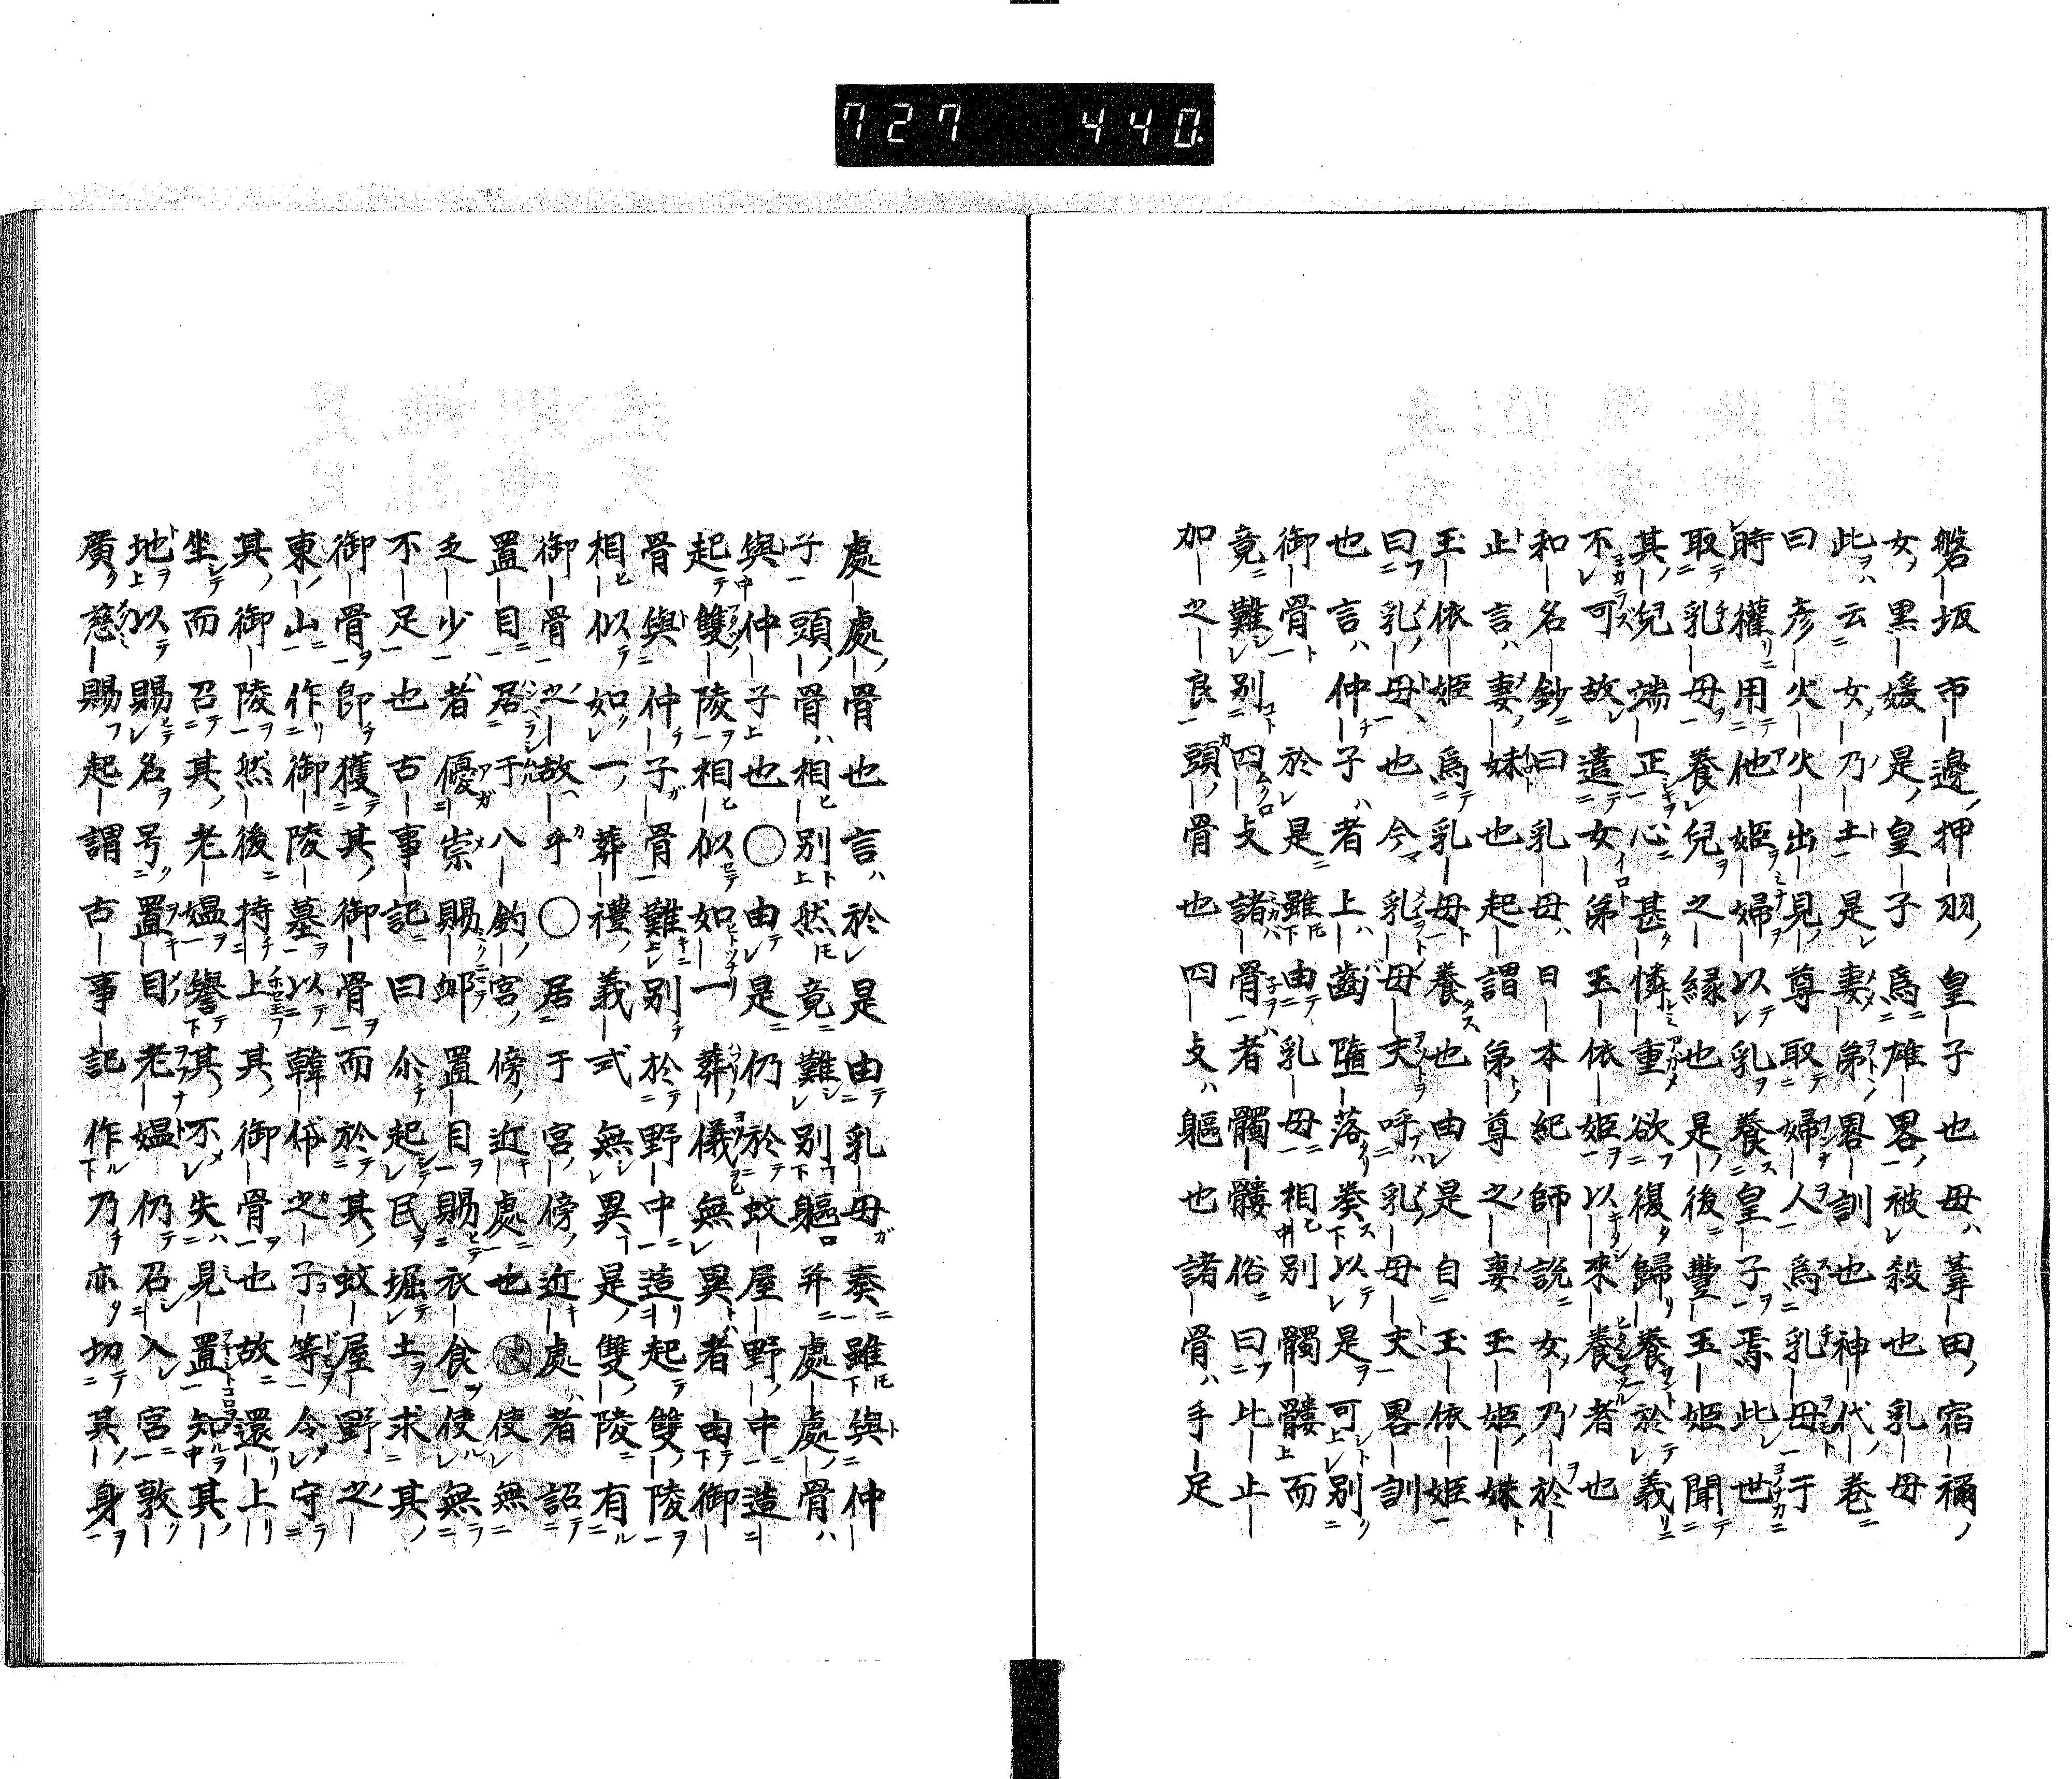 磐坂市邊押羽皇子也母葦田宿禰
女黒媛是皇子爲雄畧被殺也乳母
此云女乃土是妻弟畧訓也神代巻
曰彦火火出見尊取婦人爲乳母于
時權用他姫婦以乳養皇子焉此世
取乳母養兒之縁也是後豐玉姫聞
其兒端正心甚憐重欲復歸養於義
不可故遣女弟玉依姫以來養者也
和名鈔曰乳母日本紀師説女乃於
止言妻妹也起謂弟尊之妻玉姫妹
玉依姫爲乳母養也由是自玉依姫
曰乳母也今乳母夫呼乳母夫畧訓
也言仲子者上齒墮落癸以是可別
御骨於是雖由乳母相別髑髏而
竟難別四支諸骨者髑髏俗曰比止
加之良頭骨也四支躯也諸骨手足
處處骨也言於是由乳母奏雖與仲
子頭骨相別然竟難別躯并處處骨
與仲子也○由是仍於蚊屋野中造
起雙陵相似如一葬儀無異者由御
骨與仲子骨難別於野中造起雙陵
相似如一葬禮義式無異是雙陵有
御骨之故乎○居于宮傍近處者詔
置目居于八釣宮傍近處也○使無
乏少者優崇賜䘏置目賜衣食使無
不足也古事記曰尒起民堀土求其
御骨即獲其御骨而於其蚊屋野之
東山作御陵墓以韓帒之子等令守
其御陵然後持上其御骨也故還上
坐而召其老媼譽其不失見置知其
地以賜名号置目老媼仍召入宮敦
廣慈賜起謂古事記作乃亦切其身
727 440